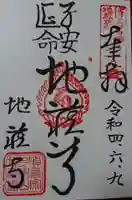 奉拝
令和四、六、九
子安
延命
地蔵尊
地蔵寺